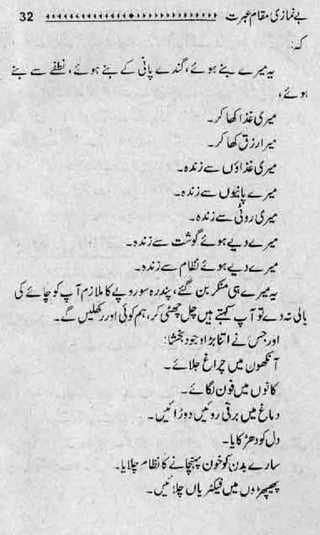 بے نمازی مقام عبرت 32
کہ:
یہ میرے بنے ہوئے، گندے پانی کے بنے ہوئے، نطفے سے بنے
ہوئے،
میری غذا کھا کر۔
میرا رزق کھا کر۔
میری غذاؤں سے زندہ۔
میرے پانیوں سے زندہ۔
میری روٹی سے زندہ۔
میرے دیے ہوئے گوشت سے زندہ۔
میرے دیے ہوئے نظام سے زندہ۔
یہ میرے ہی منکر بن گئے، پندرہ سو روپے کا ملازم آپ کو چائے کی
پیالی نہ دے تو آپ کہتے ہیں چل چھٹی کر، ہم کوئی اور رکھ لیں گے۔
اور جس نے اتنا بڑا وجود بخشا:
آنکھوں میں چراغ جلائے۔
کانوں میں فون لگائے۔
دماغ میں برقی روئیں دوڑائیں۔
دل کو دھڑکایا۔
سارے بدن کو خون پہنچانے کا نظام چلایا۔
پھیپھڑوں میں فیکٹریاں چلائیں۔